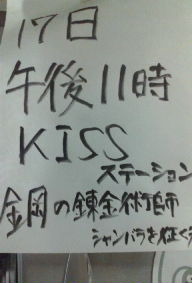 17日
午後11時
KISS
ステーション
金鋼の錬金術師
シャンバラを征く